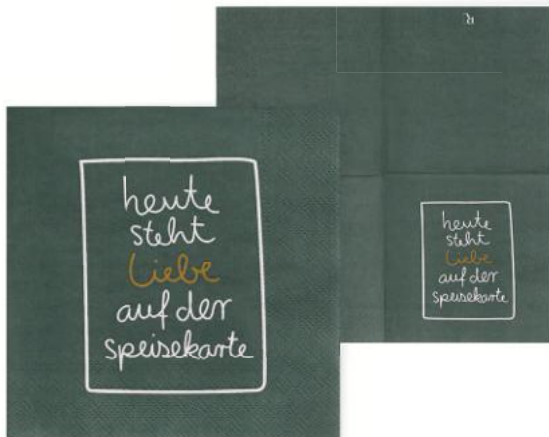 heute
steht
Liebe
auf der
speisekarte
R
heute
steht
Liebe
auf der
speisekarte